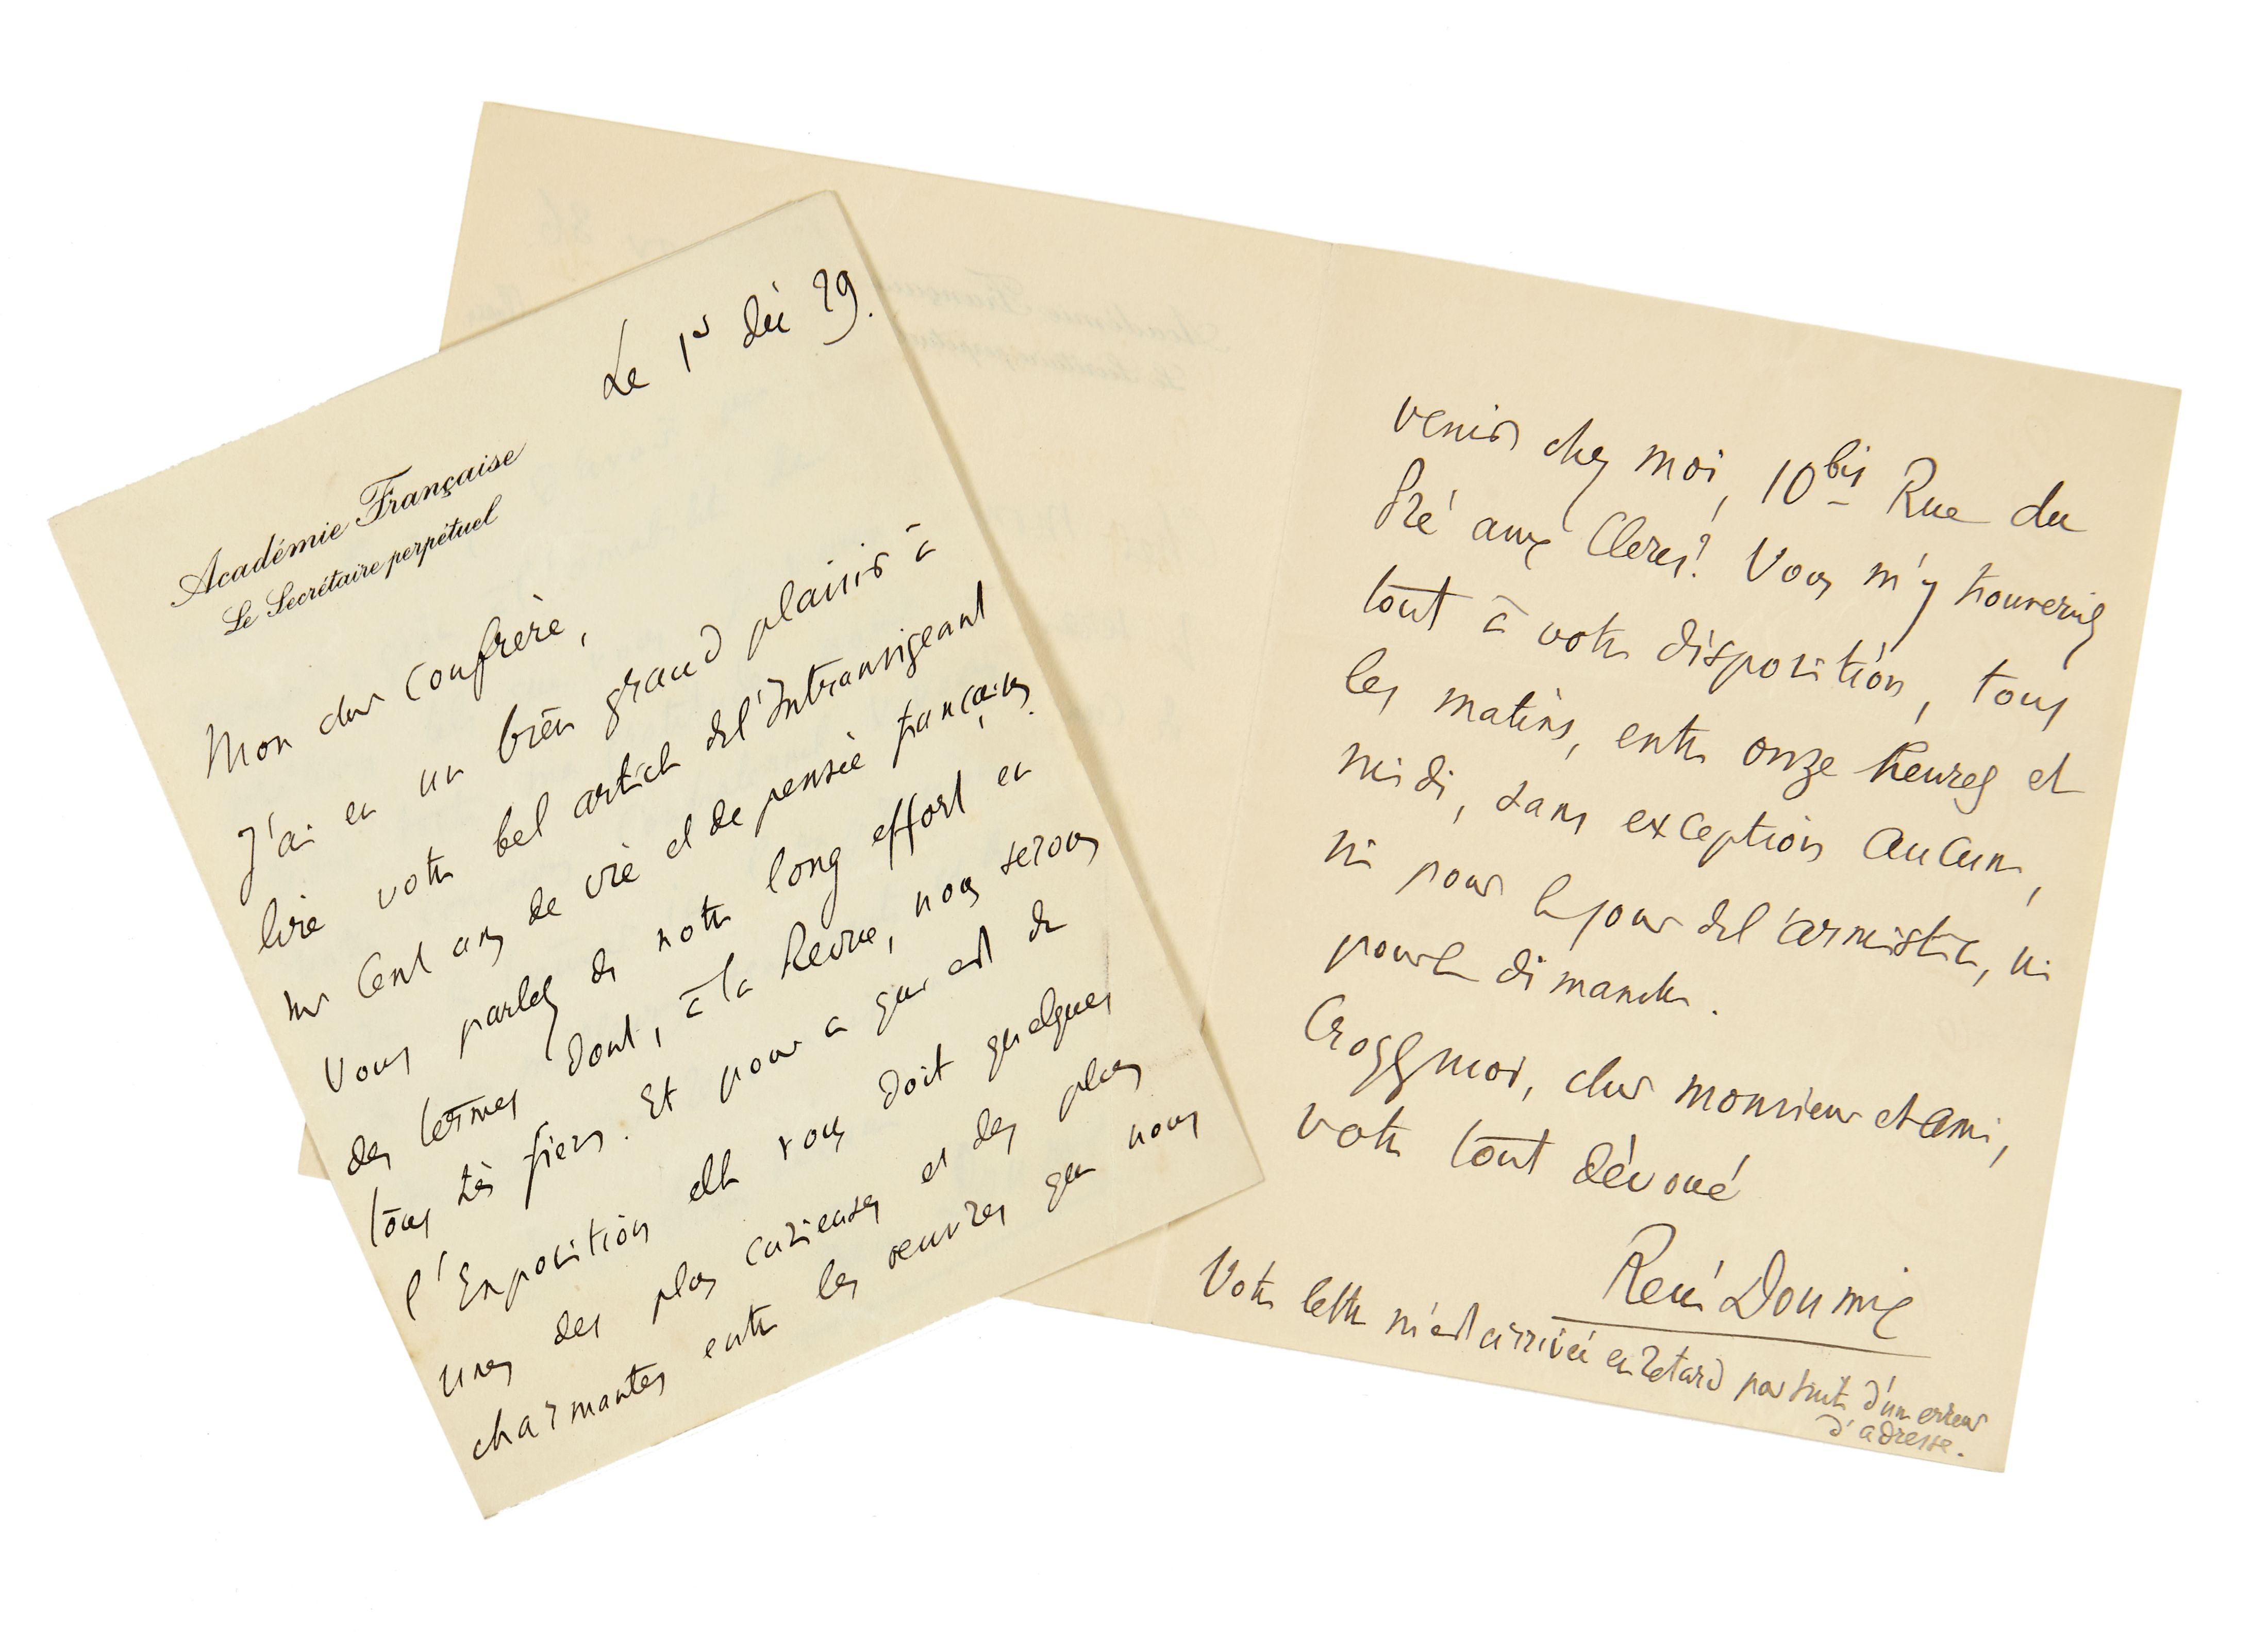 Le 1er déc 29.
Académie Française
Le Secrétaire perpétuel
Mon cher confrère,
J'ai eu un bien grand plaisir à
lire votre bel article de l'Intransigeant
sur Cent ans de vie et de pensée française.
Vous parlez de notre long effort en
des termes dont, à la Revue, nous serons
tous très fiers. Et pour ce qui est de
l'Exposition elle vous doit quelques
unes des plus curieuses et des plus
charmantes entre les œuvres que nous
venir chez moi, 10 bis Rue du
Pré aux Clercs? Vous m'y trouveriez
tout à votre disposition, tous
les matins, entre onze heures et
midi, sans exception aucune,
ni pour le jour de l'armistice, ni
pour le dimanche.
Croyez moi, cher monsieur et ami,
votre tout dévoué
René Doumic
Votre lettre m'est arrivée en retard par suite d'une erreur
d'adresse.